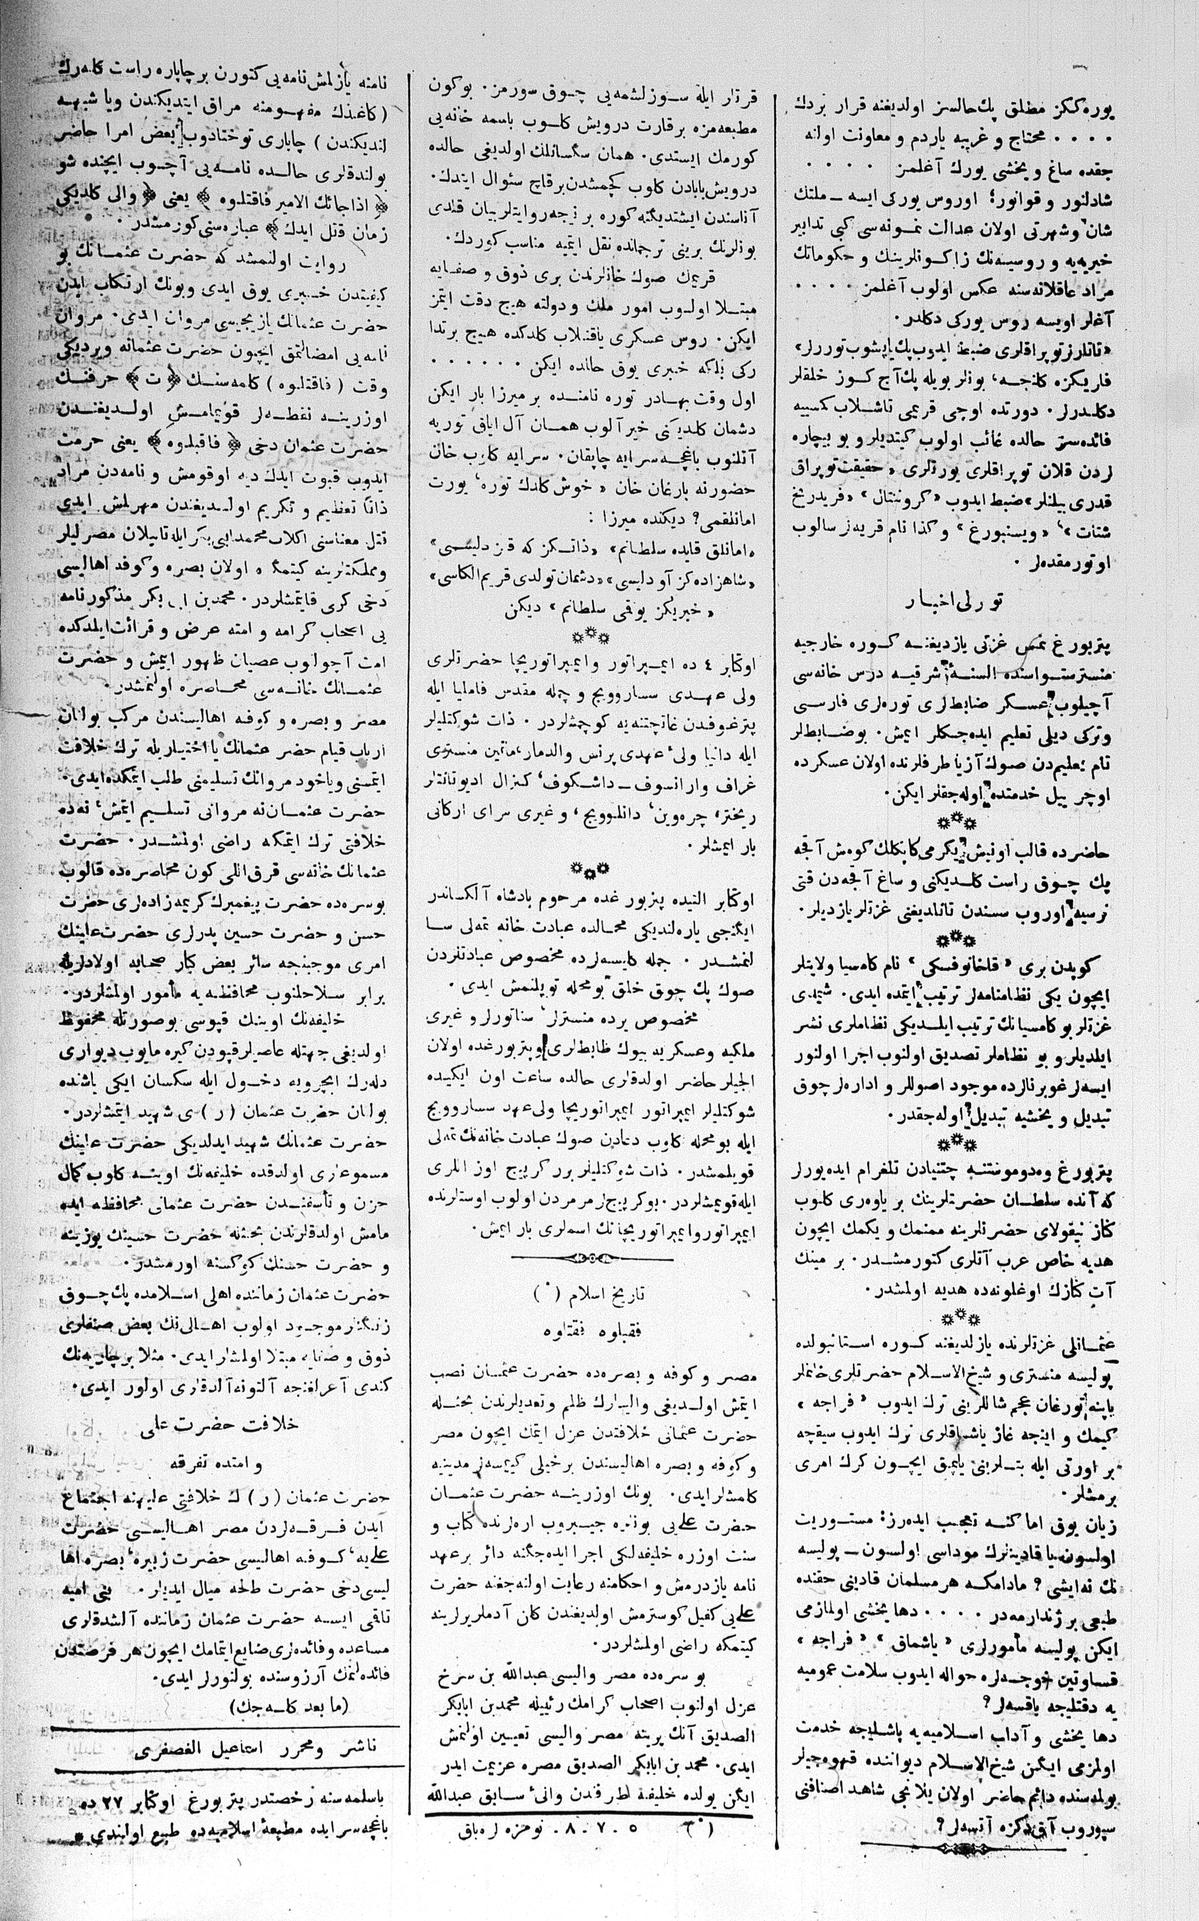 یوره‌ککز مطلق پك حالسز اولدیغنه قرار بردك
.... محتاج و غریبه یاردم و معاونت اولنه
جقده ساغ و یخشی یورك آغلمز .....
شادلنور و قوانور؛ اوروس یورکی ایسه ـ ملتك
شان و شهرتی اولان عدالت نمونه‌سی کبی تدابیر
خیریه‌یه و روسیه‌نك زاکونلرینك و حکوماتك
مراد عاقلانه‌سنه عکس اولوب آغلمز .....
آغلر اویسه روس یورکی دکلدر.
«تاتارلر توپراقلری ضبط ایدوب پك یاپشوب تورر لر»
فاریکزه کلنجه، بونلر بویله پك آچ کوز خلقلر
دکلدرلر. دورتده اوچی قریمی تاشلاب کمسیه
فائده‌سز حالده غائب اولوب کیتدیلر و بو بیچاره
لردن قلان توپراقلری یورتلری «حقیقت توپراق
قدری بیلنلر» ضبط ایدوب «کروننتال» «فریدریخ
شتات»، «ویسنبورغ» و کذا نام قریه‌لر سالوب
اوتورمقده‌لر.
تورلی اخبار
پتربورغ نمس غزتی یازدیغنه کوره خارجیه
منسترستواسنده السنهٔ شرقیه درس خانه‌سی
آچیلوب عسکر ضابطلری توره‌لری فارسی
وترکی دیلی تعلیم ایده‌جکلر ایمش. بوضابطلر
تام تعلیم‌دن صوك آزیا طرفلرنده اولان عسکرده
اوچر ییل خدمتده اوله‌جقلر ایکن.
حاضرده قالب اونبش یکرمی کاپکلك کومش آقچه
پك چوق راست کلدیکنی و ساغ آقچه‌دن قتی
نرسیه اوروب سسندن تانالدیغنی غزتلر یازدیلر.
کوپدن بری «قلخانوفسکی» نام کامسیا ولایتلر
ایچون یکی نظامنامه‌لر ترتیب ایتمده ایدی. شیمدی
غزتلر بو کامسیانك ترتیب ایلدیکی نظاملری نشر
ایلدیلر و بو نظاملر تصدیق اولنوب اجرا اولنور
ایسه‌لر غوبرنالرده موجود اصوللر و اداره‌لر چوق
تبدیل و یخشیه تبدیل اوله‌جقدر.
پتربورغ وه‌دوموستنه چتنیادن تلغرام ایده‌یورلر
که آنده سلطان حضرتلرینك بر یاوری کلوب
کناز نیقولای حضرتلرینه ممنمك و یکمك ایچون
هدیه خاص عرب آتلری کتورمشدر. بر مینك
آت کنازك اوغلونه‌ده هدیه اولمشدر.
عثمانلی غزتلرنده یازلدیغنه کوره استانبولده
پولیسه منستری و شیخ‌الاسلام حضرتلری خانملر
یاپنه تورغان عجم شاللرینی ترك ایدوب «فراجه»
کیمك و اینجه غاز یاشماقلری ترك ایدوب سیقچه
بر اورتی ایله بتلرینی یاپمق ایچون کرك امری
برمشلر.
زیان یوق اما کنه تعجب ایده‌رز: مستوریت
اولسون یا قادینلرك موداسی اولسون ـ پولیسه
نك نه‌ایشی؟ مادامکه هر مسلمان قادینی حقنده
طبعی بر ژندارمه‌در .... دها یخشی اولمازمی
ایکن پولیسه مأمورلری «یاشماق» «فراجه»
قساوتین خوجه‌لره حواله ایدوب سلامت عمومیه
یه دقتلیجه باقسه‌لر؟
دها یخشی و آداب اسلامیه‌یه یاشلیجه خدمت
اولمزمی ایکن شیخ‌الاسلام دیواننده قهوه‌جیلر
بولمه‌سنده دائم حاضر اولان یلانجی شاهد اصنافنی
سپوروب آق دکزه آتسه‌لر؟
قرتلر ایله سوزلشمه‌یی چوق سورمز. بوکون
مطبعه‌مزه برقارت درویش کلوب باسمه خانه‌یی
کورمك ایستدی. همان سکسانلك اولدیغی حالده
درویش بابادن کلوب کچمشدن برقاچ سئوال ایتدك.
آناسندن ایشتدیکنه کوره بر نیجه روایتلر بیان قلدی
بونلرنك برینی ترجمانده نقل ایتمیه مناسب کوردك.
قریمك صوك خانلرندن بری ذوق و صفایه
مبتلا اولوب امور ملك و دولته هیچ دقت ایتمز
ایکن. روس عسکری یاقنلاب کلدکده هیچ برتدا
رکی بلکه خبری یوق حالده ایکن ......
اول وقت بهادر توره نامنده بر میرزا بار ایکن
دشمان کلدیکنی خبر آلوب همان آل ایاق توریه
آتلنوب باغچه‌سرایه چاپقان. سرایه کلوب خان
حضورنه بارغان خان «خوش کلدك توره، یورت
امانلقمی؟ دیکنده میرزا:
«امانلق قایده سلطانم» «ذانکز که قز دلیسی»
«شاهزاده‌کز آو دلیسی» «دشمان تولدی قریم الکاسی»
«خبریکز یوقمی سلطانم» دیکن
اوکتابر ٤ ده ایمپراتور وایمپراتوریچا حضرتلری
ولی عهدی سساروویچ و جمله مقدس فاملیا ایله
پترغوفدن غاتچتنه‌یه کوچمشلردر. ذات شوکتلیلر
ایله دانیا ولیٔ عهدی پرنس والدمار، ماتین منستری
غراف وارانسوف ـ داشکوف، کنرال ادیوتانتلر
ریختر، چره‌وین، دانلوویچ، و غیری سرای ارکانی
بار ایمشلر.
اوکتابر التیده پتربورغده مرحوم پادشاه آلکساندر
ایکنجی یاره‌لندیکی محالده عبادت خانه تملی سا
لنمشدر. جمله کلیسه‌لرده مخصوص عبادتلردن
صوك پك چوق خلق بو محله توپلنمش ایدی.
مخصوص یرده منسترلر، سناتورلر و غیری
ملکیه و عسکریه بیوك ظابطلری و پتربورغده اولان
الجیلر حاضر اولدقلری حالده ساعت اون ایکیده
شوکتلیلر ایمپراتور ایمپراتوریچا ولی عهد سساروویچ
ایله بو محله کلوب دعادن صوك عبادت خانه‌نك تملی
قویلمشدر. ذات شوکتلیلر برر کرپیچ اوز اللری
ایله قویمشلردر. بو کرپیچلر مرمردن اولوب اوستلرنده
ایمپراتور و ایمپراتوریچانك اسملری بار ایمش.
تاریخ اسلام (*)
فقبلوه فقتلوه
مصر و کوفه و بصره‌ده حضرت عثمان نصب
ایتمش اولدیغی والیلرك ظلم و تعدیلرندن بحثله
حضرت عثمانی خلافتدن عزل ایتمك ایچون مصر
و کوفه و بصره اهالیسندن برخیلی کیمسه‌لر مدینیه
کلمشلر ایدی. بونك اوزرینه حضرت عثمان
حضرت علی‌یی بونلره جیبروب اره‌لرنده کتاب و
سنت اوزره خلیفه‌لکی اجرا ایده‌جکنه دائر برعهد
نامه یازدرمش و احکامنه رعایت اولنه‌جغنه حضرت
علی‌یی کفیل کوسترمش اولدیغندن کلن آدملر یرلرینه
کیتمکه راضی اولمشلردر.
بو سره‌ده مصر والیسی عبدالله بن سرخ
عزل اولنوب اصحاب کرامك رئیله محمد بن ابابکر
الصدیق آنك یرینه مصر والیسی تعیین اولنمش
ایدی. محمد بن ابابکر الصدیق مصره عزیمت ایدر
ایکن یولده خلیفه طرفندن والیٔ سابق عبدالله
(*) ۵ .۷ .۸. نومره‌لره باق
نامنه یازلمش نامه‌یی کتورن بر چاپاره راست کله‌رك
(کاغدك مفهومنه مراق ایتدیکندن ویا شبهه
لندیکندن) چاپاری توختادوب بعض امرا حاضر
بولندقلری حالده نامه‌یی آچوب ایچنده شو
﴿اذا جائك الامیر فاقتلوه﴾ یعنی ﴿والی کلدیکی
زمان قتل ایدك﴾ عباره‌سنی کورمشدر.
روایت اولنمشد که حضرت عثمانك بو
کیفیتدن خبری یوق ایدی وبونك ارتکاب ایدن
حضرت عثمانك یازیجیسی مروان ایدی. مروان
نامه‌یی امضالتمق ایچون حضرت عثمانه ویردیکی
وقت (فاقتلوه) کلمه‌سنك ﴿ت﴾ حرفنك
اوزرینه نقطه‌لر قویمامش اولدیغندن
حضرت عثمان دخی ﴿فاقبلوه﴾ یعنی حرمت
ایدوب قبوت ایدك دیه اوقومش و نامه‌دن مراد
ذاتاً تعظیم و تکریم اولدیغندن مهرلمش ایدی
قتل معناسنی اکلاب محمد ابی بکر ایله تاپیلان مصرلیلر
ومملکترینه کیتمکده اولان بصره و کوفه اهالیسی
دخی کری قایتمشلردر. محمد بن ابی بکر مذکور نامه
یی اصحاب کرامه و امته عرض و قرائت ایلدکده
امت آجولوب عصیان ظهور ایمش و حضرت
عثمانك خانه‌سی محاصره اولنمشدر.
مصر و بصره و کوفه اهالیسندن مرکب بولنان
ارباب قیام حضر عثمانك یا اختیاریله ترك خلافت
ایتمسنی ویاخود مروانك تسلیمنی طلب ایتمکده ایدی.
حضرت عثمان نه مروانی تسلیم ایتمش، نه‌ده
خلافتی ترك ایتمکه راضی اولمشدر. حضرت
عثمانك خانه‌سی قرق اللی کون محاصره‌ده قالوب
بوسره‌ده حضرت پیغمبرك کریمه‌زاده‌لری حضرت
حسن و حضرت حسین پدرلری حضرت علینك
امری موجبنجه سائر بعض کبار صحابه اولادلریله
برابر سلاحلنوب محافظه‌یه مأمور اولمشلردر.
خلیفه‌نك اوینك قپوسی بوصورتله محفوظ
اولدیغی جهتله عاصیلر قپودن کیره مایوب دیواری
دله‌رك ایچرویه دخول ایله سکسان ایکی یاشنده
بولنان حضرت عثمان (ر) ی شهید ایتمشلردر.
حضرت عثمانك شهید ایدلدیکی حضرت علینك
مسموعلری اولدقده خلیفه‌نك اوینه کلوب کمال
حزن و تأسفندن حضرت عثمانی محافظه ایده
مامش اولدقلرندن بحثنه حضرت حسینك یوزینه
و حضرت حسنك کوکسنه اورمشدر.
حضرت عثمان زماننده اهلی اسلامده پك چوق
زنکنلر موجود اولوب اهالی‌نك بعض صنفلری
ذوق و صفایه مبتلا اولمشلر ایدی. مثلا بر جاریه‌نك
کندی آغرلغنجه آلتونه آلدقلری اولور ایدی.
خلافت حضرت علی
و امتده تفرقه
حضرت عثمان (ر) ك خلافتی علیهنه اجتماع
ایدن فرقه‌لردن مصر اهالیسی حضرت
علی‌یه، کوفه اهالیسی حضرت زبیره، بصره اها
لیسی دخی حضرت طلحه میال ایدیلر. بنی امیه
تاقی ایسه حضرت عثمان زماننده آلشدقلری
مساعده و فائده‌لری ضایع ایتمامك ایچون هر فرصتدن
فائده‌لنمك آرزوسنده بولنورلر ایدی.
(ما بعد کله‌جك)
ناشر ومحرر اسماعیل الغصفری
باسلمه‌سنه رخصتدر پتربورغ اوکتابر ٢٧ ده
باغچه‌سرایده مطبعهٔ اسلامیه‌ده طبع اولندی